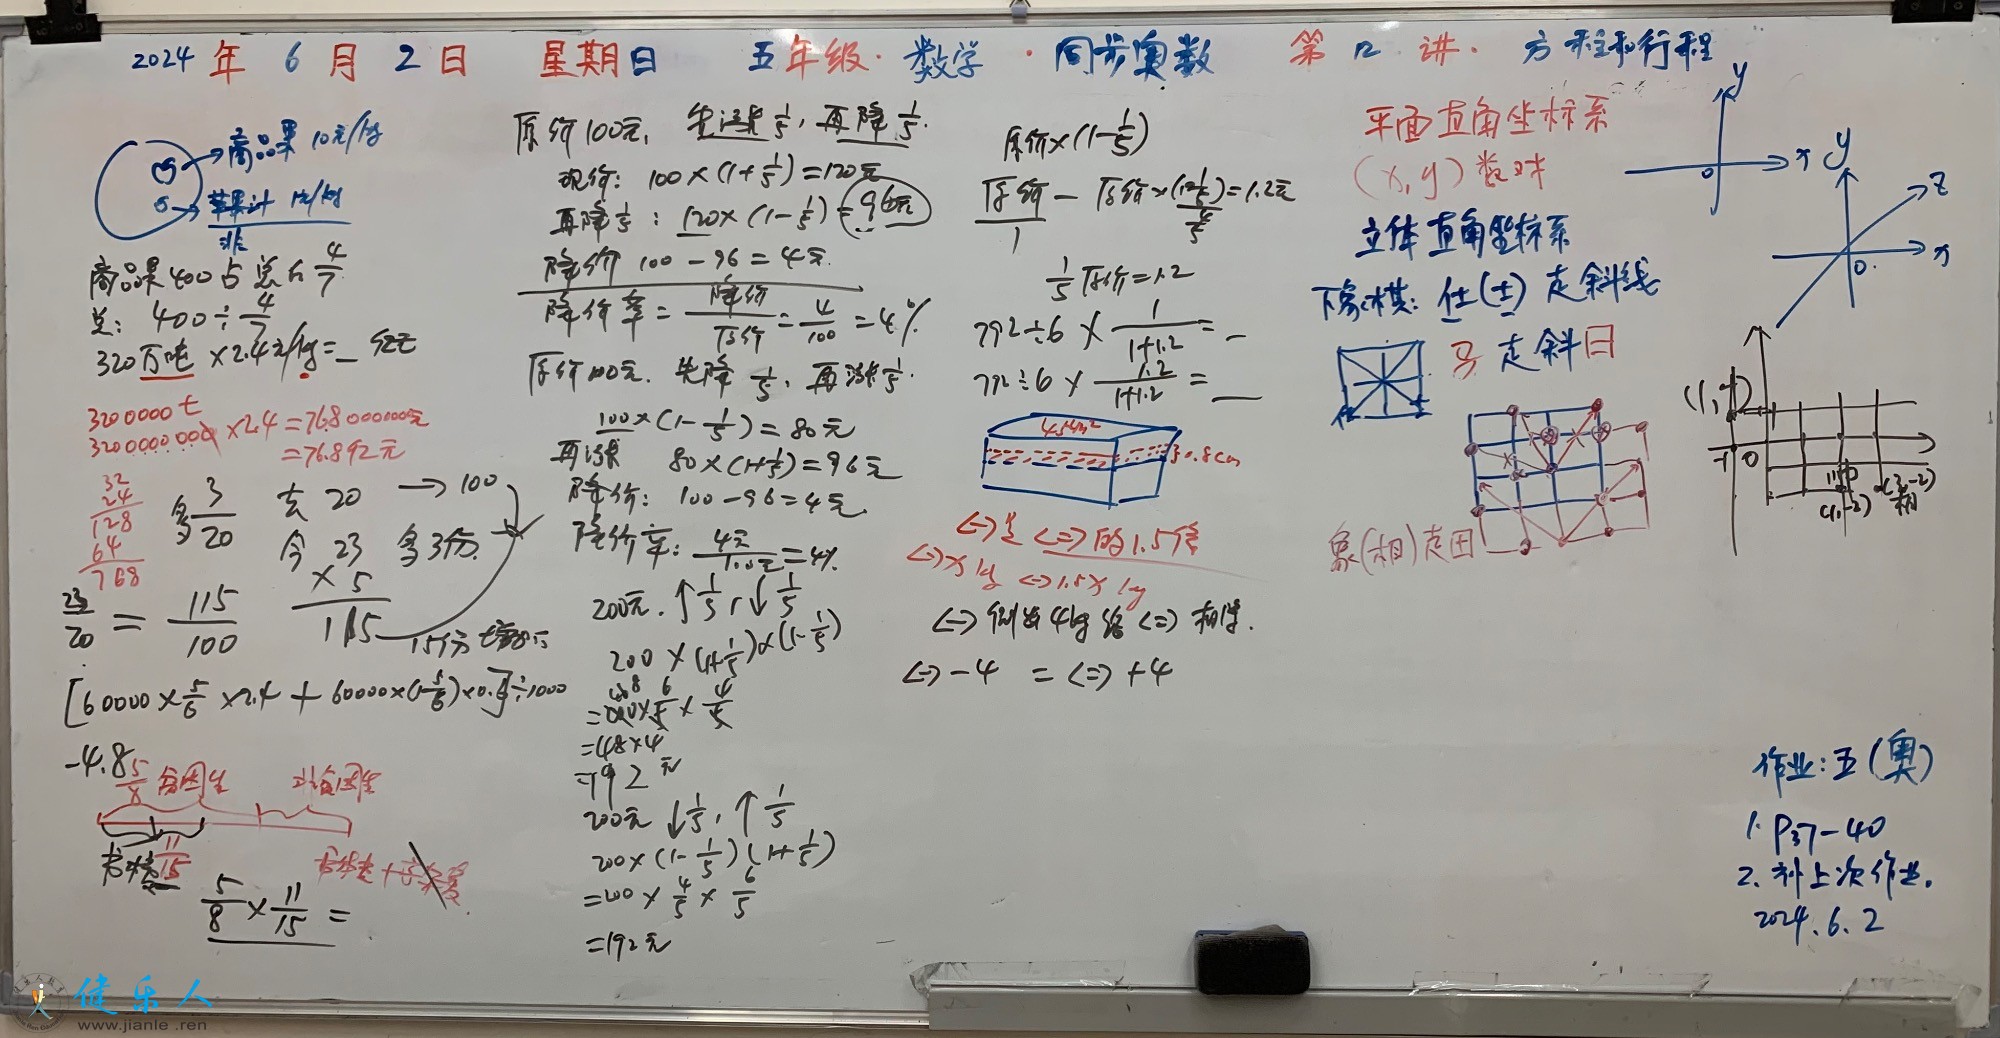 2024 年 6 月 2 日 星期日 五年级·数学·同步奥数 第12讲·方程和行程
商品果 10元/kg
苹果汁
非
商品果400占总的 4/7
总: 400÷4/7
320万吨 ×2.4元/kg=_亿元
3200000 t
3200000000 ×2.4=7680000000元
=76.8亿元
32
24
128
64
768
多 3/20 去 20 → 100
今 23 多3份
×5
115
23/20 = 115/100
[60000×5/6×2.4+60000×(1-5/6)×0.8]÷1000
-4.8
5/8 贫困生 非贫困生
11/15
5/8×11/15=
原价100元, 先涨 1/5, 再降 1/5.
现价: 100×(1+1/5)=120元
再降1/5: 120×(1-1/5)=96元
降价 100-96=4元
降价率=降价/原价=4/100=4%
原价100元. 先降 1/5, 再涨 1/5.
100×(1-1/5)=80元
再涨 80×(1+1/5)=96元
降价: 100-96=4元.
降价率: 4元/100元=4%.
200元. ↑1/5, ↓1/5
200×(1+1/5)×(1-1/5)
=200×6/5×4/5
=48×4
=192元
200元 ↓1/5, ↑1/5
200×(1-1/5)(1+1/5)
=200×4/5×6/5
=192元
原价×(1-1/5)
原价-原价×(1-1/5)=1.2元
1
4/5
1/5原价=1.2
792÷6×1/(1+1.2)=_
792÷6×1.2/(1+1.2)=_
0.8cm
<-> 是 <=> 的1.5倍
<-> x kg <-> 1.5x kg
<-> 倒出4kg给 <=> 相等.
<-> -4 = <=> +4
平面直角坐标系
(x,y) 数对
立体直角坐标系
下象棋: 仕(士) 走斜线
马 走斜日
象(相)走田
y
x
0
y
z
x
0
-1
0
(1,-2)
(3,-2)
相
作业:五(奥)
1. P37-40
2. 补上次作业.
2024.6.2
健乐人
www.jianle.ren